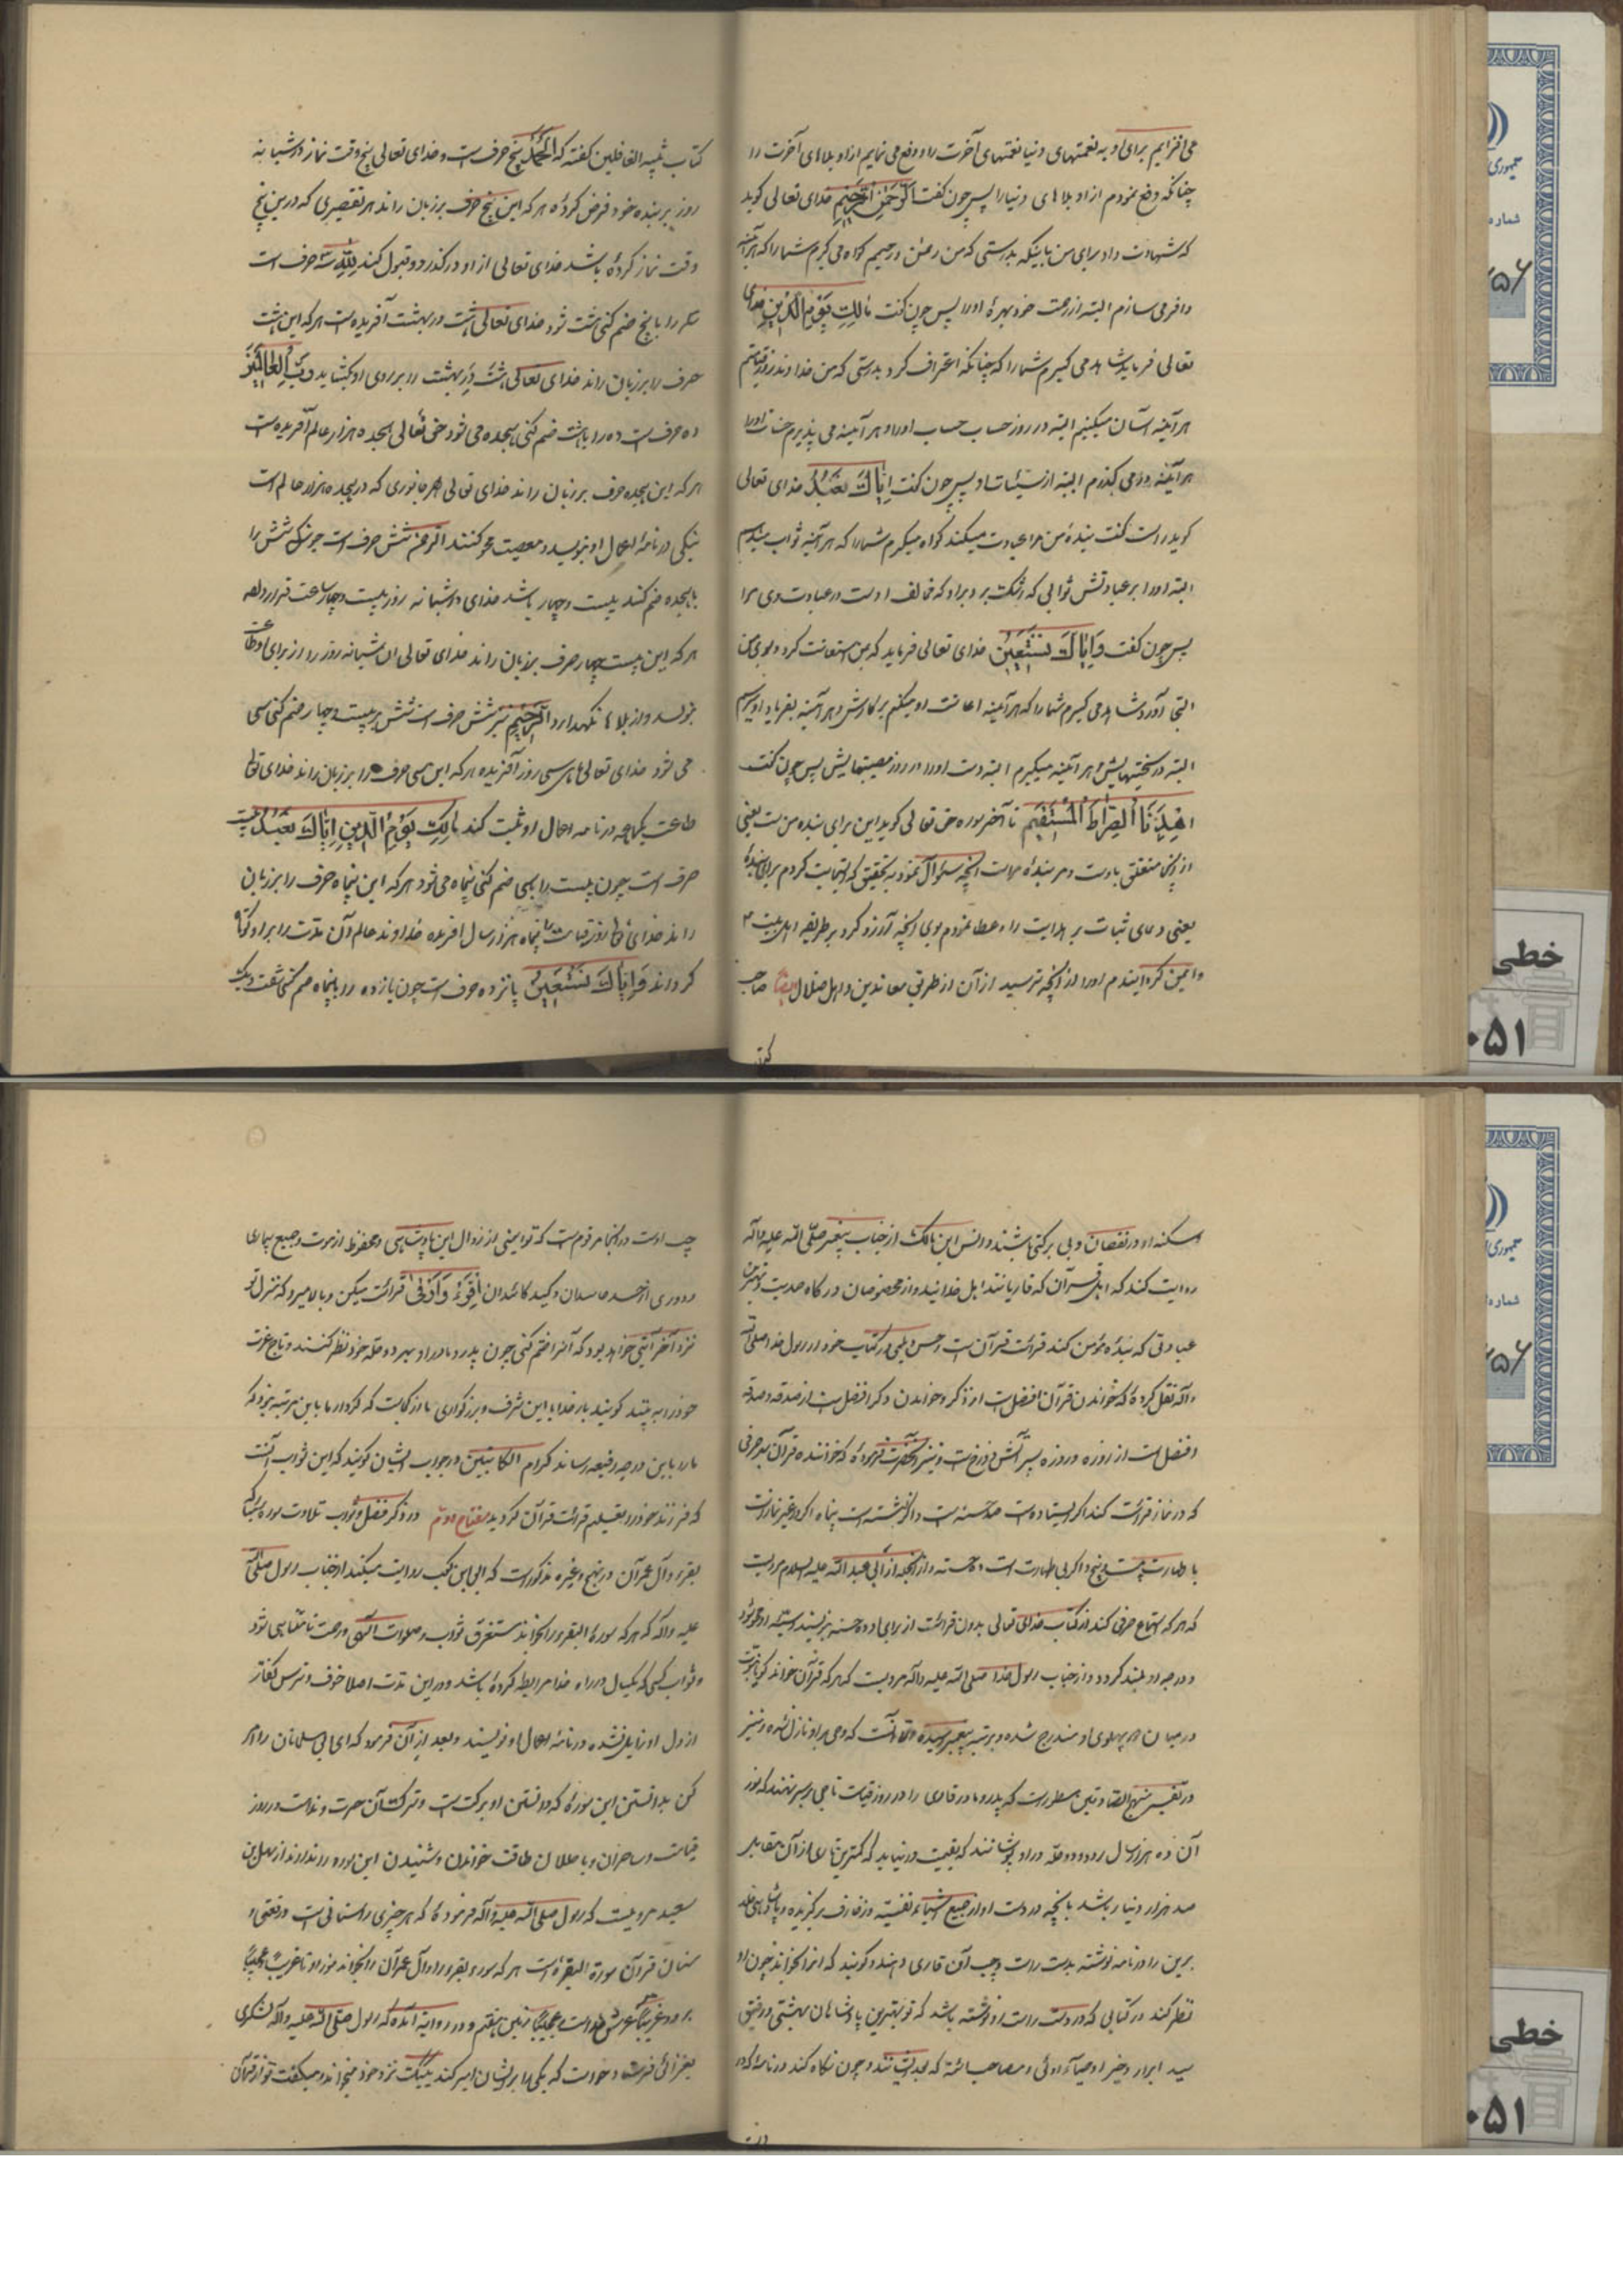 می‌افزایم برای او به نعمتهای دنیا نعمتهای آخرت را و دفع می نمایم از او بلاهای آخرت را
چنانکه دفع نمودم از او بلاهای دنیا را پس چون گفت الرَّحْمٰنِ الرَّحِیمِ خدای تعالی گوید
که شهادت داد برای من باینکه بدرستی که من رحمن و رحیمم گواه می گیرم شما را که هرآینه
وافر می سازم البته از رحمت خود بهرهٔ او را پس چون گفت مَالِكِ یَوْمِ الدِّینِ خدای
تعالی فرماید شاهد می گیرم شما را که چنانکه اعتراف کرد بدرستی که من خداوند روز قیامتم
هرآینه آسان میکنیم البته در روز حساب حساب او را و هرآینه می پذیرم حسنات او را
هرآینه در می گذرم البته از سیئات او پس چون گفت اِیَّاكَ نَعْبُدُ خدای تعالی
گوید راست گفت بندهٔ من مرا عبادت میکند گواه میگیرم شما را که هرآینه ثواب میدهم
البته او را بر عبادتش ثوابی که رشک برد بر او که مخالف اوست در عبادت وی مرا
پس چون گفت وَاِیَّاكَ نَسْتَعِینُ خدای تعالی فرماید که بمن استعانت کرد و بسوی من
التجا آورد شاهد می گیرم شما را که هرآینه اعانت او میکنم بر کارش و هرآینه بفریاد او میرسم
البته در سختیهایش و هرآینه میگیرم البته دست او را در روز مصیبتهایش پس چون گفت
اِهْدِنَا الصِّرَاطَ الْمُسْتَقِیمَ تا آخر سوره حق تعالی گوید این برای بنده من است یعنی
از آنچه متعلق باوست و مر بندهٔ مراست آنچه سئوال نمود بتحقیق که اجابت کردم برای بندهٔ
یعنی دعای ثبات بر هدایت را و عطا نمودم بوی آنچه آرزو کرد بر طریقه اهل بیت
و ایمن گردانیدم او را از آنچه ترسید از آن از طریق معاندین و اهل ضلال ایضا صاحب
کتاب تنبیه الغافلین گفته که اَلْحَمْدُ پنج حرف است و خدای تعالی پنج وقت نماز در شبانه
روز بر بنده خود فرض کرده هر که این پنج حرف بر زبان راند هر تقصیری که درین پنج
وقت نماز کرده باشد خدای تعالی از او درگذرد و قبول کند لِلّٰهِ سه حرف است
سه را با پنج ضم کنی هشت شود خدای تعالی هشت در بهشت آفریده است هر که این هشت
حرف را بر زبان راند خدای تعالی هشت در بهشت را بر روی او بگشاید رَبِّ الْعَالَمِینَ
ده حرف است ده را با هشت ضم کنی هیجده می شود حق تعالی هیجده هزار عالم آفریده است
هر که این هیجده حرف بر زبان راند خدای تعالی بهر جانوری که در هیجده هزار عالم است
نیکی در نامهٔ اعمال او بنویسد و معصیت محو کنند الرحمن شش حرف است چونکه شش را
با هیجده ضم کنند بیست و چهار باشد خدای در شبانه روز بیست و چهار ساعت قرار داده
هر که این بیست و چهار حرف بر زبان راند خدای تعالی آن شبانه روز را از برای او طاعت
بنویسد و از بلاها نگهدارد اَلرَّحِیم نیز شش حرف است شش بر بیست و چهار ضم کنی سی
می شود خدای تعالی ماه سی روز آفریده هر که این سی حرف را بر زبان راند خدای تعالی
طاعت یکماهه در نامه اعمال او ثبت کند مَالِكِ یَوْمِ الدِّینِ اِیَّاكَ نَعْبُدُ بیست
حرف است چون بیست را بسی ضم کنی پنجاه می شود هر که این پنجاه حرف را بر زبان
راند خدای تعالی روز قیامت را پنجاه هزار سال آفریده خداوند عالم آن مدت را بر او کوتاه
گرداند وَاِیَّاكَ نَسْتَعِینُ یازده حرف است چون یازده را با پنجاه ضم کنی شصت و یک
کتاب
در نقصان و بی برکتی باشند و انس ابن مالک از جناب پیغمبر صلّی الله علیه و آله
روایت کند که اهل قرآن که قاریانند اهل خدایند و از مخصوصان درگاه صمدیت و بهترین
عبادتی که بندهٔ مؤمن کند قرائت قرآن است و حسن دیلمی در کتاب خود از رسول خدا صلی الله
و آله نقل کرده که خواندن قرآن افضل است از ذکر و خواندن ذکر افضل است از صدقه و صدقه
افضل است از روزه و روزه سپر آتش دوزخ است و نیز آنحضرت فرموده که خواننده قرآن بهر حرفی
که در نماز قرائت کند اگر ایستاده است صد حسنه است و اگر نشسته است پنجاه و اگر در غیر نماز است
با طهارت بیست و پنج و اگر بی طهارت است ده حسنه و از آنجمله از ابی عبد الله علیه السلام مرویست
که هر که استماع حرفی کند از کتاب خدای تعالی بدون قرائت از برای او ده حسنه بنویسند و سیئه او محو شود
و درجه او بلند گردد و از جناب رسول خدا صلی الله علیه و آله مرویست که هر که قرآن خواند گویا نبوت
در میان دو پهلوی او مندرج شده و بمرتبه پیغمبر رسیده الا آنست که وحی بر او نازل نشده و نیز
در تفسیر منهج الصادقین مسطور است که پدر و مادر قاری را در روز قیامت تاجی بر سر نهند که نور
آن ده هزار سال رود و دو حله در او پوشانند که بقیمت در نیاید که کمترین تاری از آن مقابل
صد هزار دینار باشد بآنچه در دست او از جمیع اشیاء نفیسه و زخارف برگزیده و پادشاهی خلد
برین را در نامه نوشته بدست راست و چپ آن قاری دهند و گویند که اینرا بخواند چون او
نظر کند در کتابی که در دست راست او نوشته باشد که تو بهترین پادشاهان بهشتی و رفیق
سید ابرار و خیر اوصیاء اوئی و مصاحب ائمه که هداتند و چون نگاه کند در نامه که در
چپ اوست در آنجا مرقوم است که تو ایمنی از زوال این پادشاهی و محفوظ از موت و جمیع بیماری
و دوری از حسد حاسدان و کید کائدان اِقْرَءْ وَارْقَ قرائت میکن و بالا میرو که منزل تو
نزد آخر آیتی خواهد بود که آنرا ختم کنی چون پدر و مادر او بهر دو حله خود نظر کنند و تاج عزت
خود را ببینند گویند بار خدایا این شرف و بزرگواری ما از کجاست که کردار ما باین مرتبه نبود که
ما را باین درجه رفیعه رساند کرام الکاتبین در جواب ایشان گویند که این ثواب آنست
که فرزند خود را تعلیم قرائت قرآن کردید مفتاح دوم در ذکر فضل و ثواب تلاوت سوره مبارکه
بقره و آل عمران در منهج و غیره مذکور است که ابی ابن کعب روایت میکند از جناب رسول صلی الله
علیه و آله که هر که سورهٔ البقره را بخواند مستغرق ثواب و صلوات الهی و رحمت نامتناهی شود
و ثواب کسی که یکسال در راه خدا مرابطه کرده باشد و در این مدت اصلا خوف و ترس کفار
از دل او زایل نشده در نامهٔ اعمال او نویسند و بعد از آن فرمود که ای ابی مسلمانان را امر
کن بدانستن این سوره که دانستن او برکت است و ترک آن حسرت و ندامت در روز
قیامت و ساحران و باطلان طاقت خواندن و شنیدن این سوره را ندارند از سهل بن
سعید مرویست که رسول صلی الله علیه و آله فرموده که هر چیزی را سنامی است و رفعتی و
سنان قرآن سورة البقره است هر که سوره بقره را و آل عمران را بخواند نور او تا غریبا عجیبا
برود غریبا عرش خداست و عجیبا زمین هفتم و در روایت آمده که رسول صلی الله علیه و آله لشکری
بغزائی فرستاد و خواست که یکی را بر ایشان امیر کند یک یک نزد خود میخواند و میگفت تو از قرآن
خطی
۰۵۱
خطی
۰۵۱